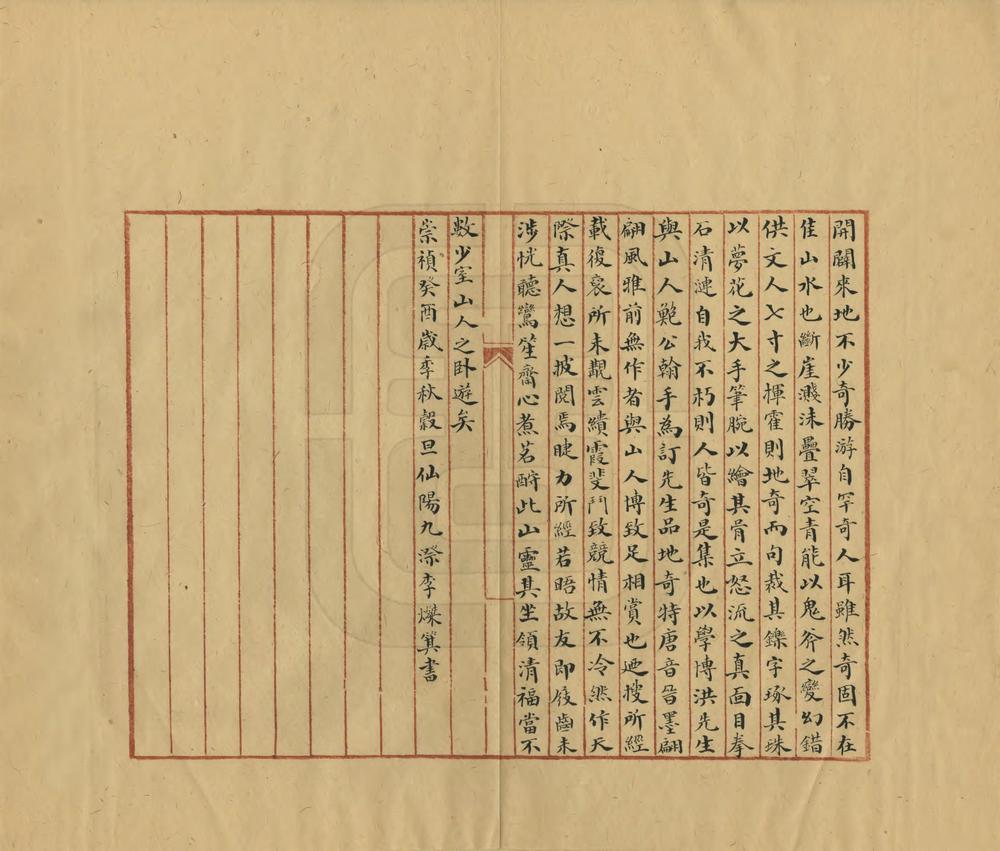 開闢來地不少奇勝游自罕奇人耳雖然奇固不在
佳山水也斷崖濺沫疊翠空青能以鬼斧之變幻錯
供文人七寸之揮霍則地奇而句裁其鑠字琢其珠
以夢花之大手筆腕以繪其骨立怒流之真面目拳
石清漣自我不朽則人皆奇是集也以學博洪先生
與山人鮑公翰手為訂先生品地奇特唐音晉墨翩
翩風雅前無作者與山人博致足相賞也迺搜所經
載復裒所未覩雲繢霞斐鬥致競情無不冷然作天
際真人想一披閱焉睫力所經若晤故友即屐齒未
涉恍聽鸞笙齋心煮茗酹此山靈其坐領清福當不
數少室山人之卧遊矣
崇禎癸酉歲季秋穀旦仙陽九漈李燦箕書